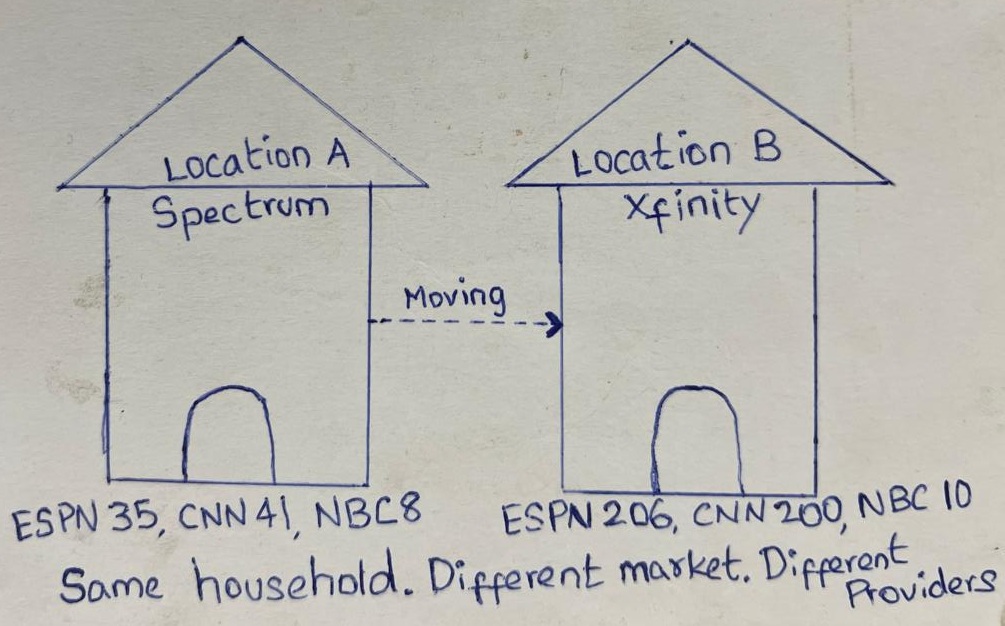 Location A
Location B
Spectrum
Xfinity
Moving
ESPN 35, CNN 41, NBC 8
ESPN 206, CNN 200, NBC 10
Same household. Different market. Different
Providers